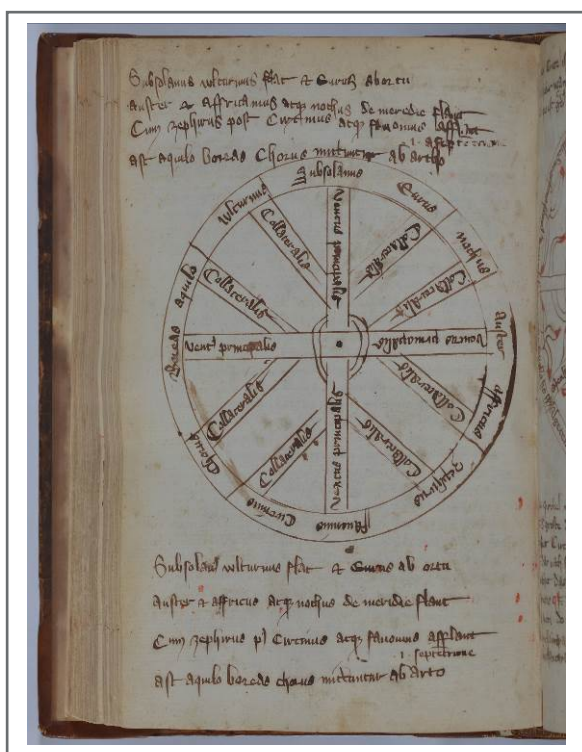 Subsolanus vulturnus flat & Eurus ab ortu
auster & affricanus atq nothus de meredie flant
Cum zephirus post Circinus atq fauonius afflant
.i. a septetrione
ast aquilo boreas Chorus mittuntur ab artho
Subsolanus
Eurus
nothus
Auster
affricus
zephirus
fauonius
Circinus
Chorus
Boreas
aquilo
vulturnus
Ventus principalis
Collateralis
Collateralis
Ventus principalis
Collateralis
Collateralis
Ventus principalis
Collateralis
Collateralis
Vent9 principalis
Collateralis
Collateralis
Subsolan9 vulturnus flat & Eurus ab ortu
auster & affricus atq nothus de meredie flant
Cum zephirus pt Circinus atq fauonius afflant
.i. septetrione
ast aquilo boreas chorus mittuntur ab arto